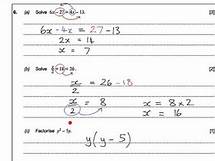 6. (a) Solve 6x − 27 = 4x − 13.
6x − 4x = 27 − 13
2x = 14
x = 7
(b) Solve x/2 + 18 = 26.
x/2 = 26 − 18
x/2 = 8 x = 8 × 2
x = 16
(c) Factorise y² − 5y.
y(y − 5)